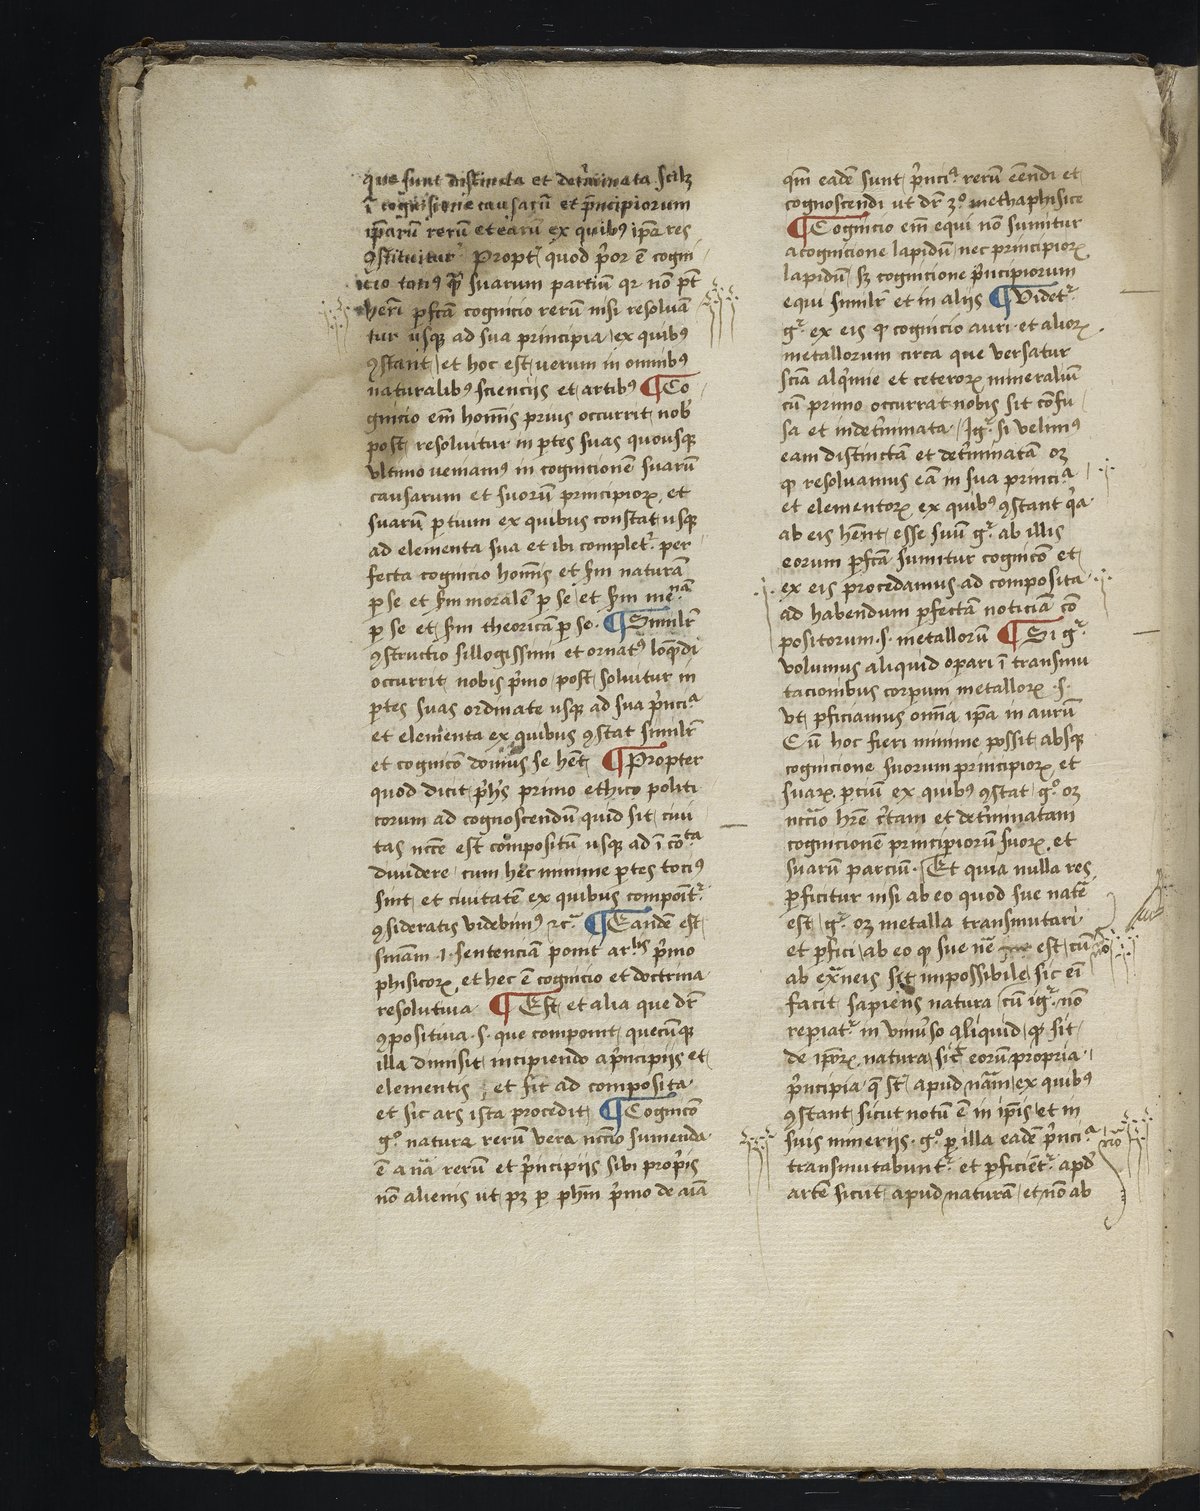 que sunt distincta et det'minata scilz
ī cognicione causarū et p'ncipiorum
ip̄arū rerū et earū ex quibꝰ ip̄a res
ꝯstituitur Propt' quod p'or ē cogni
cio totiꝰ suarum partiū qr nō pt
heri p̄fcā cognicio rerū nisi resoluā
tur usqꝫ ad sua principia ex quibꝰ
ꝯstant et hoc est uerum in omnibꝰ
naturalibꝰ sciencijs et artibꝰ ¶ Co
gnicio em̄ homīs prius occurrit nob'
post resoluitur in ꝑtes suas quousqꝫ
vltimo ueniamꝰ in cognicionē suarū
causarum et suorū principioꝝ et
suarū ꝑtium ex quibus constat usqꝫ
ad elementa sua et ibi complet' per
fecta cognicio homīs et s̄m naturā
ꝑ se et s̄m moralē ꝑ se et s̄m
ꝑ se et s̄m theoricā ꝑ se · ¶ Similr̄
ꝯstructio sillogissimi et ornatꝰ loq̄ndi
occurrit nobis p'mo post soluitur in
ꝑtes suas ordinate usqꝫ ad sua p'nciᵃ
et elementa ex quibus ꝯstat similr̄
et cognicō domus se hēt ¶ Propter
quod dicit ph's primo ethico politi
corum ad cognoscendū quid sit ciui
tas necc̄e est compositū usqꝫ ad ī cōᵗᵃ
diuidere cum hec minime ꝑtes tociꝰ
sint et ciuitatē ex quibus componit'
ꝯsideratis videbimꝰ ⁊cᵃ ¶ Eandē est
sm̄am ·i· sentenciā ponit ar.ˡⁱˢ p'mo
phisicoꝝ et hec ē cognicio et doctrina
resolutiua ¶ Est et alia que dr̄
ꝯpositiua ·s· que componit quecūqꝫ
illa diuisit incipiendo a p'ncipijs et
elementis et fit ad composita
et sic ars ista procedit ¶ Cognicō
gᵒ natura rerū vera nccīo sumenda
ē a nā rerū et p'ncipijs sibi prop'is
nō alienis ut pꝫ ꝑ ph̄m p'mo de aīa
qm̄ eadē sunt p'nciᵃ rerū eēndi et
cognoscendi ut dr̄ 3ᵒ methaphisice
¶ Cognicio em̄ equi nō sumitur
a cognicione lapidū nec principioꝝ
lapidū sꝫ cognicione p'ncipiorum
equi similr̄ et in alijs ¶ Videt'
gᵃ ex eis ꝙ cognicio auri et alioꝝ
metallorum circa que versatur
scīa alq'mie et ceteroꝝ mineraliū
cū primo occurrat nobis sit cōfu
sa et indet'minata Igᵃ si velimꝰ
eam distinctā et det'minatā oꝫ
ꝙ resoluamus eā in sua princiᵃ
et elementoꝝ ex quibꝰ ꝯstant q'a
ab eis hēnt esse suū gᵃ ab illis
eorum ꝑfcā sumitur cognicō et
ex eis procedamus ad composita
ad habendum ꝑfectā noticiā cō
positorum ·s· metallorū ¶ Si gᵃ
volumus aliquid opari ī transmu
tacionibus corpum metalloꝝ ·s·
vt ꝑficiamus om̄ia ip̄a in aurū
Cū hoc fieri minime possit absqꝫ
cognicione suorum principioꝝ et
suaꝝ ꝑciū ex quibꝰ ꝯstat gᵒ oꝫ
nccīo hr̄e c'tam et det'minatam
cognicionē principiorū suoꝝ et
suarū parciū · Et quia nulla res
ꝑficitur nisi ab eo quod sue natē
est gᵃ oꝫ metalla transmutari
et ꝑfici ab eo ꝙ sue nē est cū
ab exāneis sit impossibile sic eī
facit sapiens natura cū igᵃ nō
repiat' in vniu'so aliquid ꝙ sit
de ip̄oꝝ natura sic̄ eorū propria
p'ncipia q̄ st̄ apud nām ex quibꝰ
ꝯstant sicut notū ē in ip̄is et in
suis minerijs · gᵒ ꝑ illa eadē p'nciᵃ
transmutabunt' et ꝑficiēt' apd'
artē sicut apud naturā et nō ab